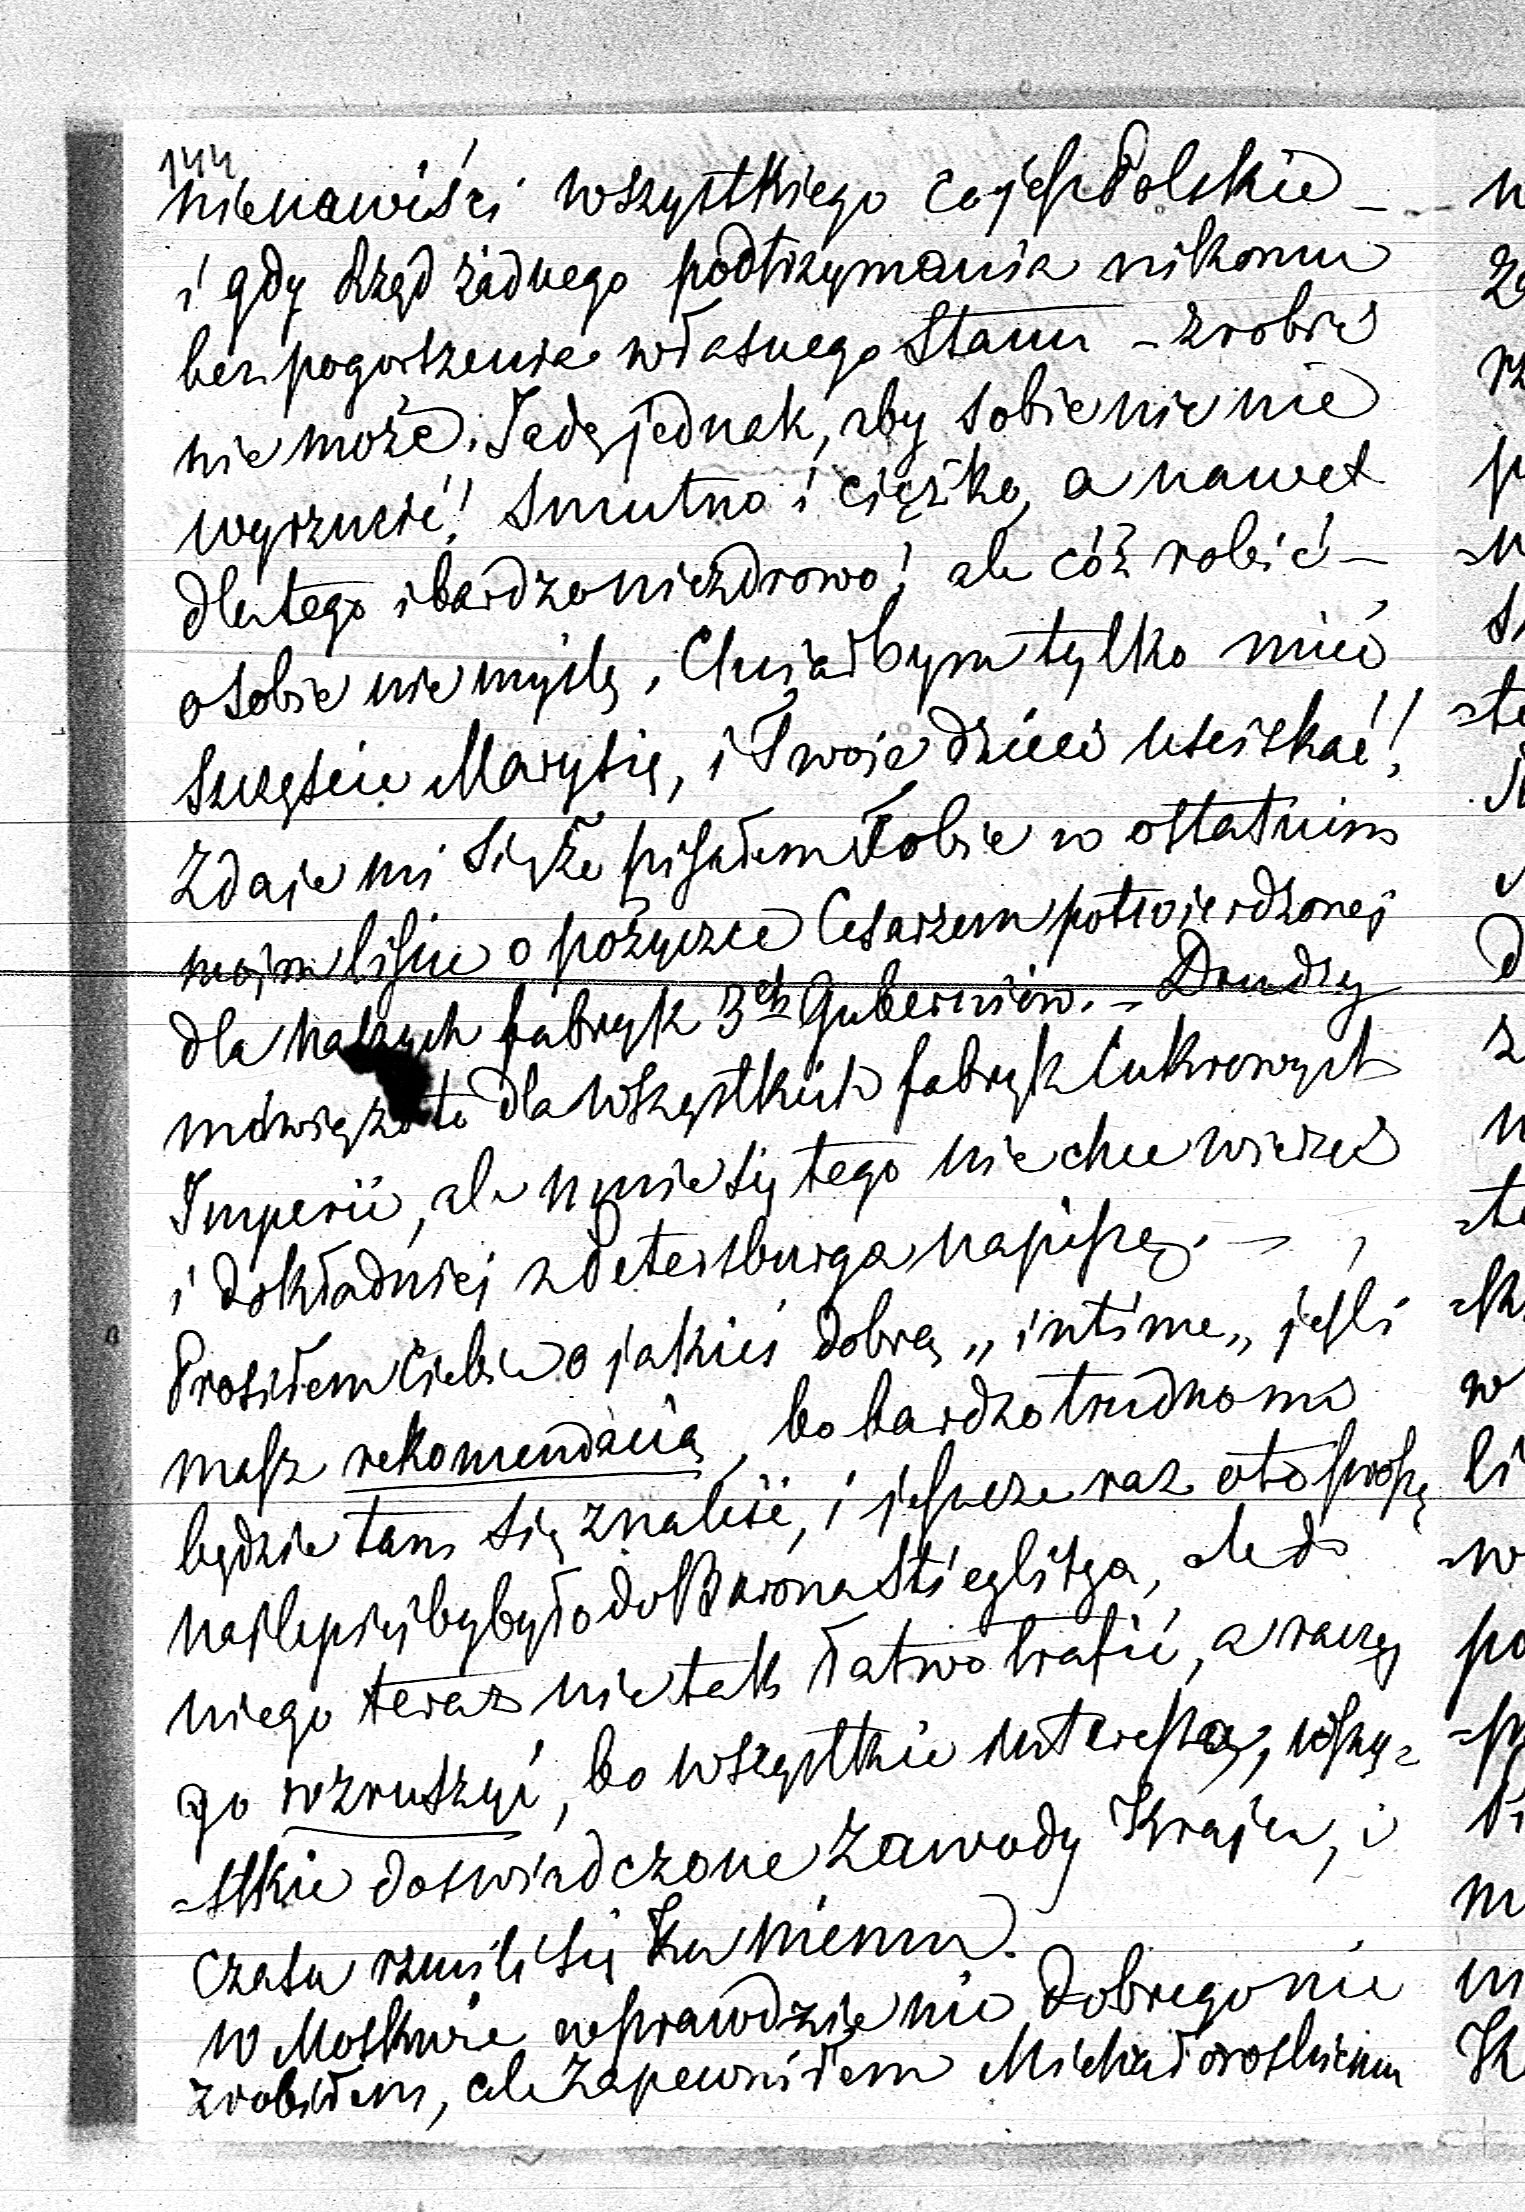 144
nienawiści wszystkiego co jest Polskie –
i gdy Rząd żadnego podtrzymania nikomu
bez pogorszenia własnego Stanu – zrobić
nie może. Jadę jednak, aby sobie nic nie
wyrzucić! Smutno i ciężko, a nawet
dla tego i bardzo niezdrowo! ale cóż robić –
o sobie nie myślę, Chciałbym tylko mieć
szczęście Marysię, i Twoje dzieci uściskać!
Zdaje mi się że pisałem Tobie w ostatnim
mojm liście o pożyczce Cesarzem potwierdzonej
dla naszych fabryk 3ch Guberniów. – Drudzy
mówią że to dla wszystkich fabryk Cukrowych
Imperii, ale mnie się tego nie chce wierzyć
i dokładniej z Petersburga napiszę. –
Prosiłem Ciebie o jakieś dobrą „intime„ jeśli
masz rekomendacią, bo bardzo trudno mi
będzie tam się znaleść, i jeszcze raz oto proszę
najlepiej by było do Barona Stieglitza, ale do
niego teraz nie tak łatwo trafić, a raczej
go wzruszyć, bo wszystkie interessa, wszy=
=stkie doswiadczone Zawody Kraju, i
czasu rzucili się ku niemu.
W Moskwie wprawdzie nic dobrego nie
zrobiłem, ale zapewniłem Michałowskiemu